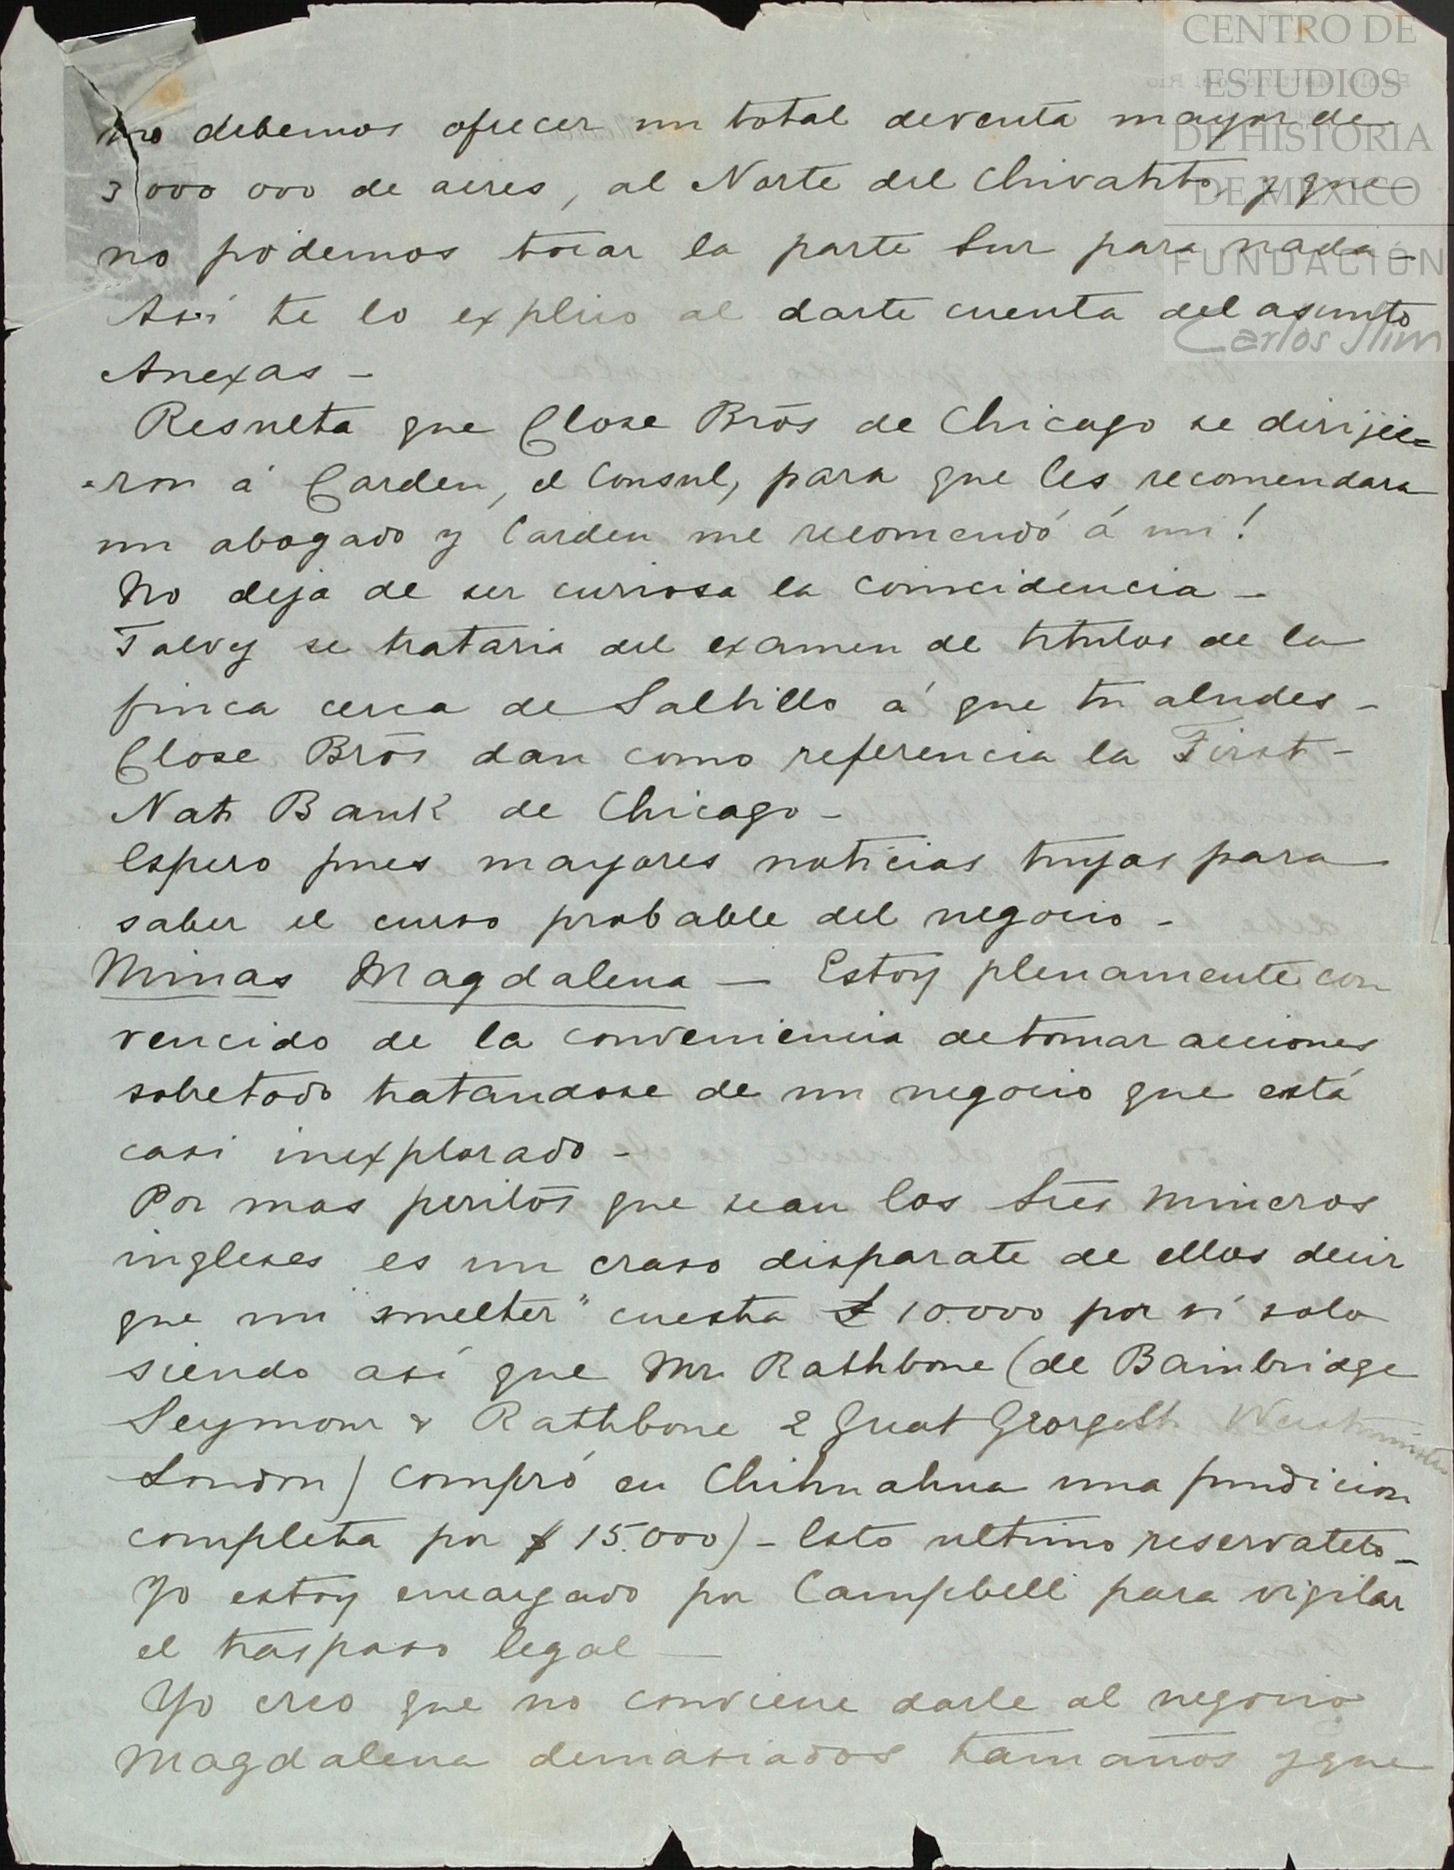 CENTRO DE
ESTUDIOS
DE HISTORIA
DE MEXICO
FUNDACIÓN
Carlos Slim
no debemos ofrecer un total de venta mayor de
3 000 000 de acres, al Norte del Chivatito, y que
no podemos tocar la parte Sur para nada -
Asi te lo explico al darte cuenta del asunto
Anexas -
Resulta que Close Bros de Chicago se dirijie=
=ron á Carden, el Consul, para que les recomendara
un abogado y Carden me recomendó á mi!
No deja de ser curiosa la coincidencia -
Talvez se trataria del examen de titulos de la
finca cerca de Saltillo á que tu aludes -
Close Bros dan como referencia la First -
Natl Bank de Chicago -
Espero pues mayores noticias tuyas para
saber el curso probable del negocio -
Minas Magdalena - Estoy plenamente con
vencido de la conveniencia de tomar acciones
sobretodo tratandose de un negocio que está
casi inexplorado -
Por mas peritos que sean los Sres Mineros
ingleses es un craso disparate de ellos decir
que un "smelter" cuesta £ 10.000 por sí solo
siendo así que Mr. Rathbone (de Bainbridge
Seymour & Rathbone 2 Great George St. Westminster
London) compró en Chihuahua una fundicion
completa por $ 15.000) - Esto ultimo reservatelo -
Yo estoy encargado por Campbell para vigilar
el traspaso legal -
Yo creo que no conviene darle al negocio
Magdalena demasiados tamaños y que